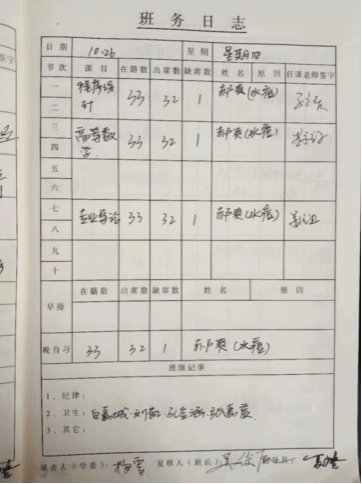 班务日志
日期 10.26 星期 星期四
节次 课目 在籍数 出席数 缺席数 姓名 原因 任课老师签字
一 二 程序设计 33 32 1 郝爽(水痘)
三 四 高等数学 33 32 1 郝爽(水痘)
五
六
七 八 专业导论 33 32 1 郝爽(水痘)
九
十
早操 在籍数 出席数 缺席数 姓名 原因
晚自习 33 32 1 郝爽(水痘)
班级记事
1、纪律:
2、卫生:
3、其它:
填表人(学委): 复核人(班长):